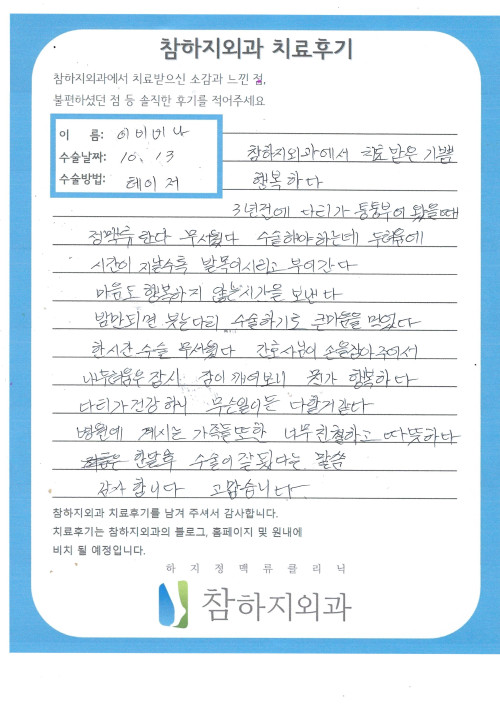 참하지외과 치료후기
참하지외과에서 치료받으신 소감과 느낀 점,
불편하셨던 점 등 솔직한 후기를 적어주세요
이 름: 이비비나
수술날짜: 10. 13
수술방법: 테이저
참하지외과에서 치료받은 기쁨
행복하다
3년전에 다리가 퉁퉁부어 왔을때
정맥류란다 무서웠다 수술해야하는데 두려움에
시간이 지날수록 발목이시리고 부어간다
마음도 행복하지 않는시간을 보낸다
밤만되면 붓는다리 수술하기로 큰마음을 먹었다
한시간 수술 무서웠다 간호사님이 손을잡아주어서
나두려움은 잠시 잠이 깨여보니 뭔가 행복하다
다리가건강하니 무슨일이든 다할거같다
병원에 계시는 가족들또한 너무친절하고 따뜻하다
한달후 수술이잘됬다는 말씀
감사합니다 고맙습니다
참하지외과 치료후기를 남겨 주셔서 감사합니다.
치료후기는 참하지외과의 블로그, 홈페이지 및 원내에
비치 될 예정입니다.
하지정맥류클리닉
참하지외과